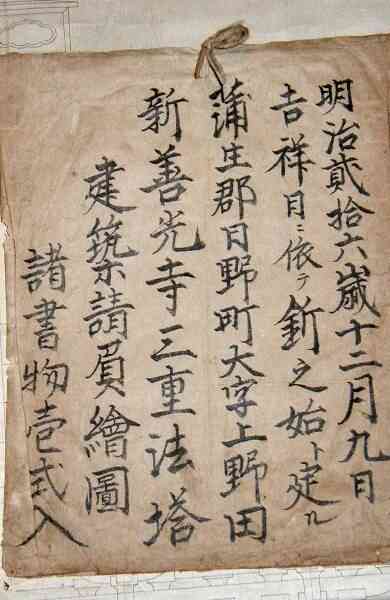 明治貳拾六歳十二月九日
吉祥日ニ依テ釿之始ト定ル
蒲生郡日野町大字上野田
新善光寺三重法塔
建築請負繪圖
諸書物壱式入